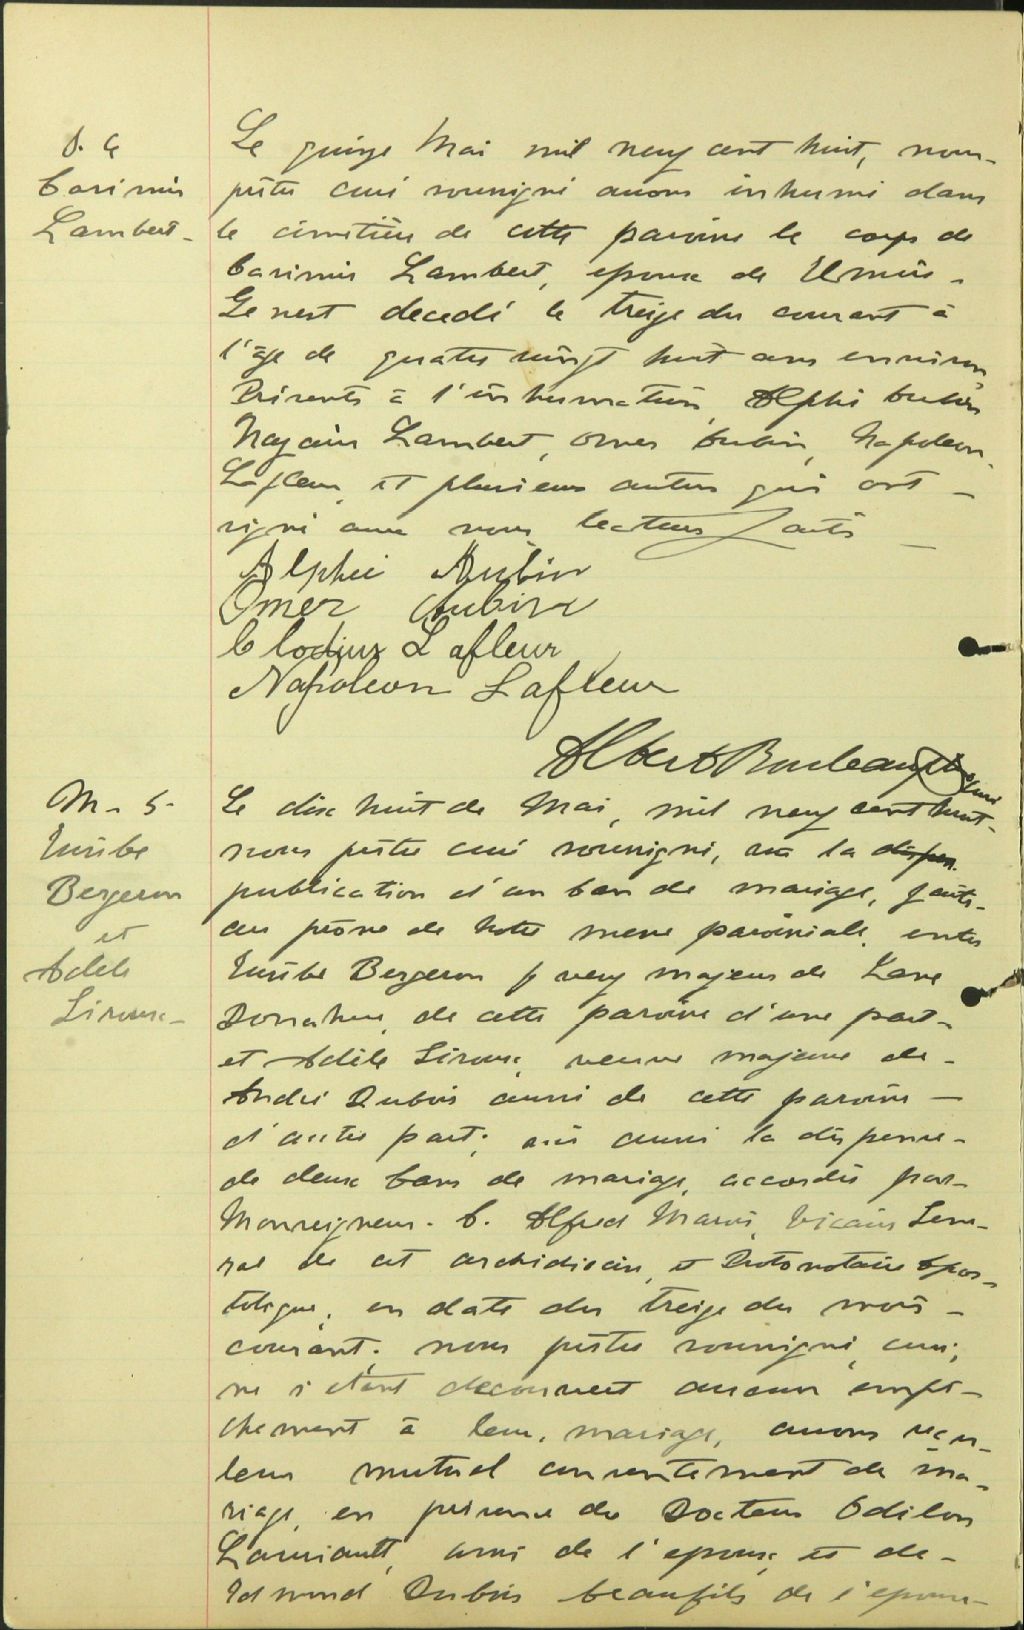 S. 4
Casimir
Lambert
Le quinze Mai mil neuf cent huit, nous
prêtre curé soussigné avons inhumé dans
le cimetière de cette paroisse le corps de
Casimir Lambert, epoux de
Genest decedé le treize du courant à
l'âge de quatre vingt huit ans environ
Présents à l'inhumation, Alphé Aubin
Nazaire Lambert, Omer Aubin, Napoleon
Lafleur, et plusieurs autres qui ont
signé avec nous lecture faite
Alphée Aubin
Omer Aubin
Clodius Lafleur
Napoleon Lafleur
Albert
M. 5
Eusèbe
Bergeron
et
Adèle
Sirouse
Le dix huit de Mai, mil neuf cent huit
nous prêtre curé soussigné, vu la dispen
publication d'un ban de mariage, faite
au prône de notre messe paroissiale, entre
Eusèbe Bergeron veuf majeur de
Donahue, de cette paroisse d'une part
et Adèle Sirouse, veuve majeure de
André Dubois aussi de cette paroisse
d'autre part; vu aussi la dispense
de deux bans de mariage, accordée par
Monseigneur C. Alfred Marois, Vicaire Géné-
ral de cet archidiocèse, et Protonotaire Apos-
tolique, en date du treize du mois
courant; nous prêtre soussigné, curé,
ne s'etant decouvert aucun empê-
chement à leur mariage, avons reçu
leur mutuel consentement de ma-
riage, en presence du Docteur Odilon
ami de l'epoux, et de
Edmond Dubois beaufils de l'epouse